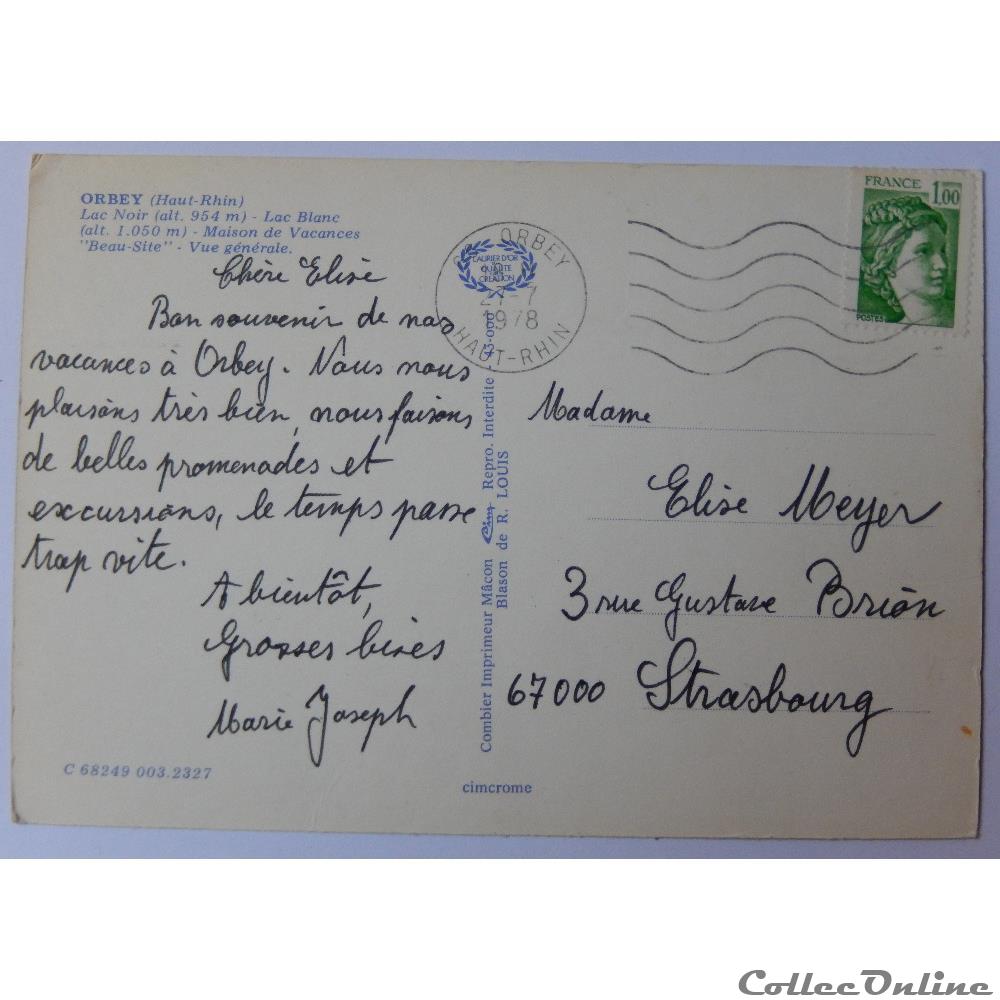 ORBEY (Haut-Rhin)
Lac Noir (alt. 954 m) - Lac Blanc
(alt. 1.050 m) - Maison de Vacances
"Beau-Site" - Vue générale.
Chère Elise
Bon souvenir de nos
vacances à Orbey. Nous nous
plaisons très bien, nous faisons
de belles promenades et
excursions, le temps passe
trop vite.
A bientôt,
Grosses bises
Marie Joseph
C 68249 003.2327
LAURIER D'OR
QUALITE
CREATION
Combier Imprimeur Mâcon Cim Repro. Interdite
Blason de R. LOUIS
cimcrome
ORBEY
27-7
1978
HAUT-RHIN
FRANCE 1.00
POSTES
Madame
Elise Meyer
3 rue Gustave Brion
67000 Strasbourg
CollecOnline